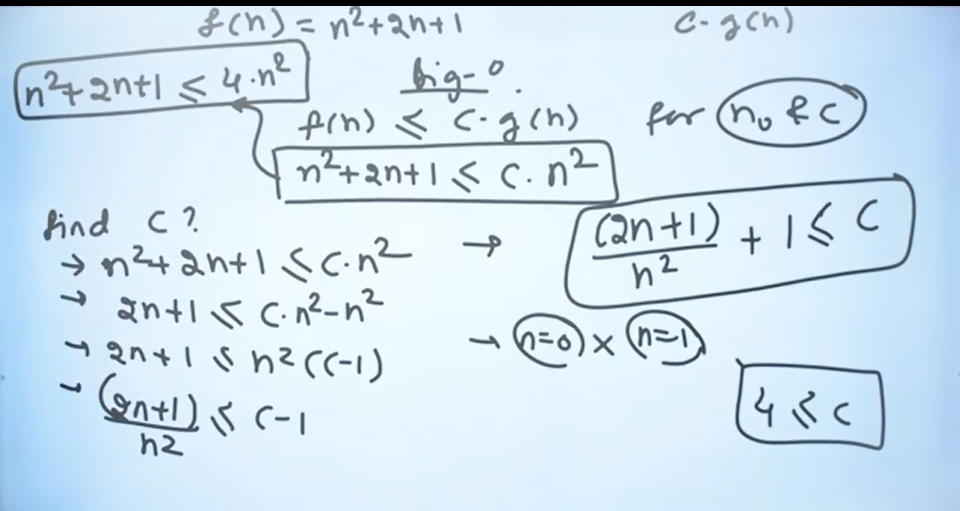 f(n) = n²+2n+1
c·g(n)
n²+2n+1 ≤ 4·n²
big-O.
f(n) ≤ c·g(n)
for n₀ & c
n²+2n+1 ≤ c·n²
find c?
→ n²+2n+1 ≤ c·n²
→ 2n+1 ≤ c·n²-n²
→ 2n+1 ≤ n²(c-1)
→ (2n+1)/n² ≤ c-1
→ (2n+1)/n² + 1 ≤ c
→ n=0 × n=1
4 ≤ c